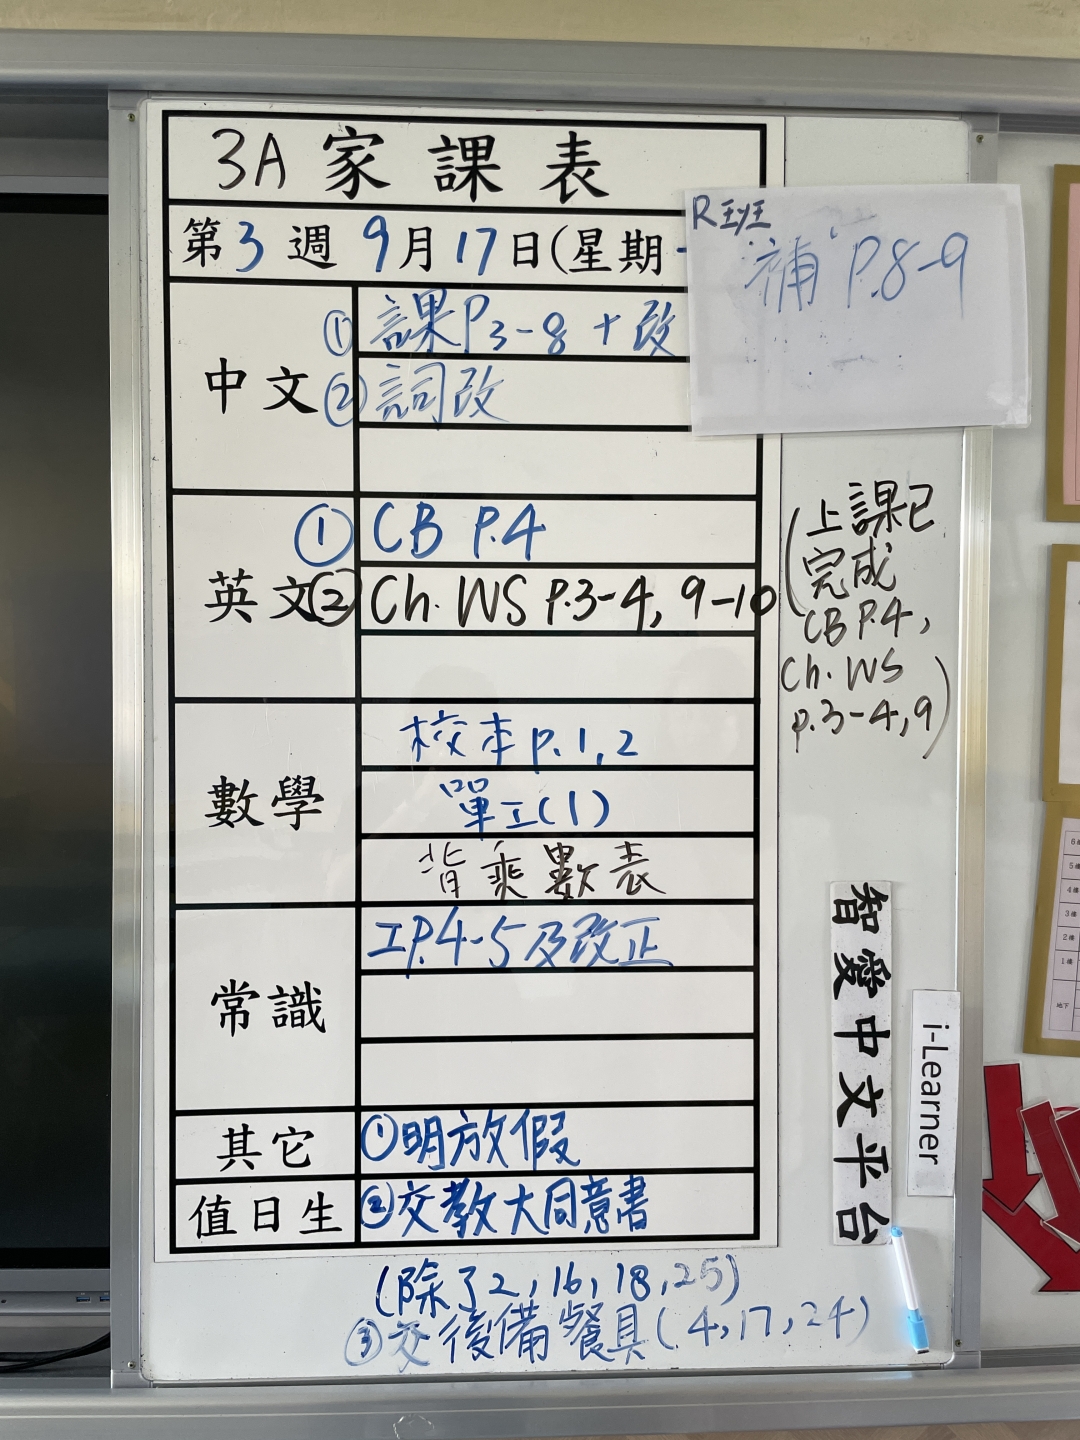 3A 家課表
第3週 9月17日(星期
R班
補 P.8-9
中文
① 課P3-8+改
② 詞改
英文
① CB P.4
② Ch. WS P.3-4, 9-10
(上課已
完成
CB P.4,
Ch. WS
p.3-4,9)
數學
校本p.1,2
單工(1)
背乘數表
常識
工P.4-5及改正
其它
①明放假
值日生
②交教大同意書
(除了2,16,18,25)
③交後備餐具(4,17,24)
智愛中文平台
i-Learner
6樓
5樓
4樓
3樓
2樓
1樓
地下